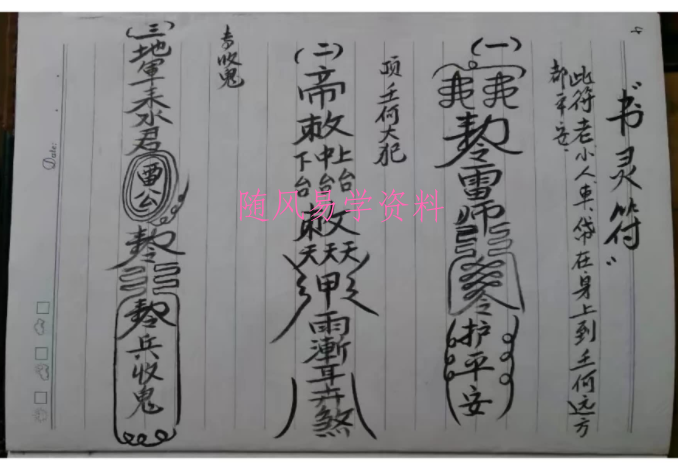 "书灵符"
此符老小人畏带在身上到任何远方
都平安
(一)
敕令雷师
令
护平安
项任何大犯
(二)
帝敕
上台
中台
下台
敕
天天天
甲
雨渐耳
煞
专收鬼
(三)地军水君
雷公
敕令
敕令兵收鬼
随风易学资料
Date: